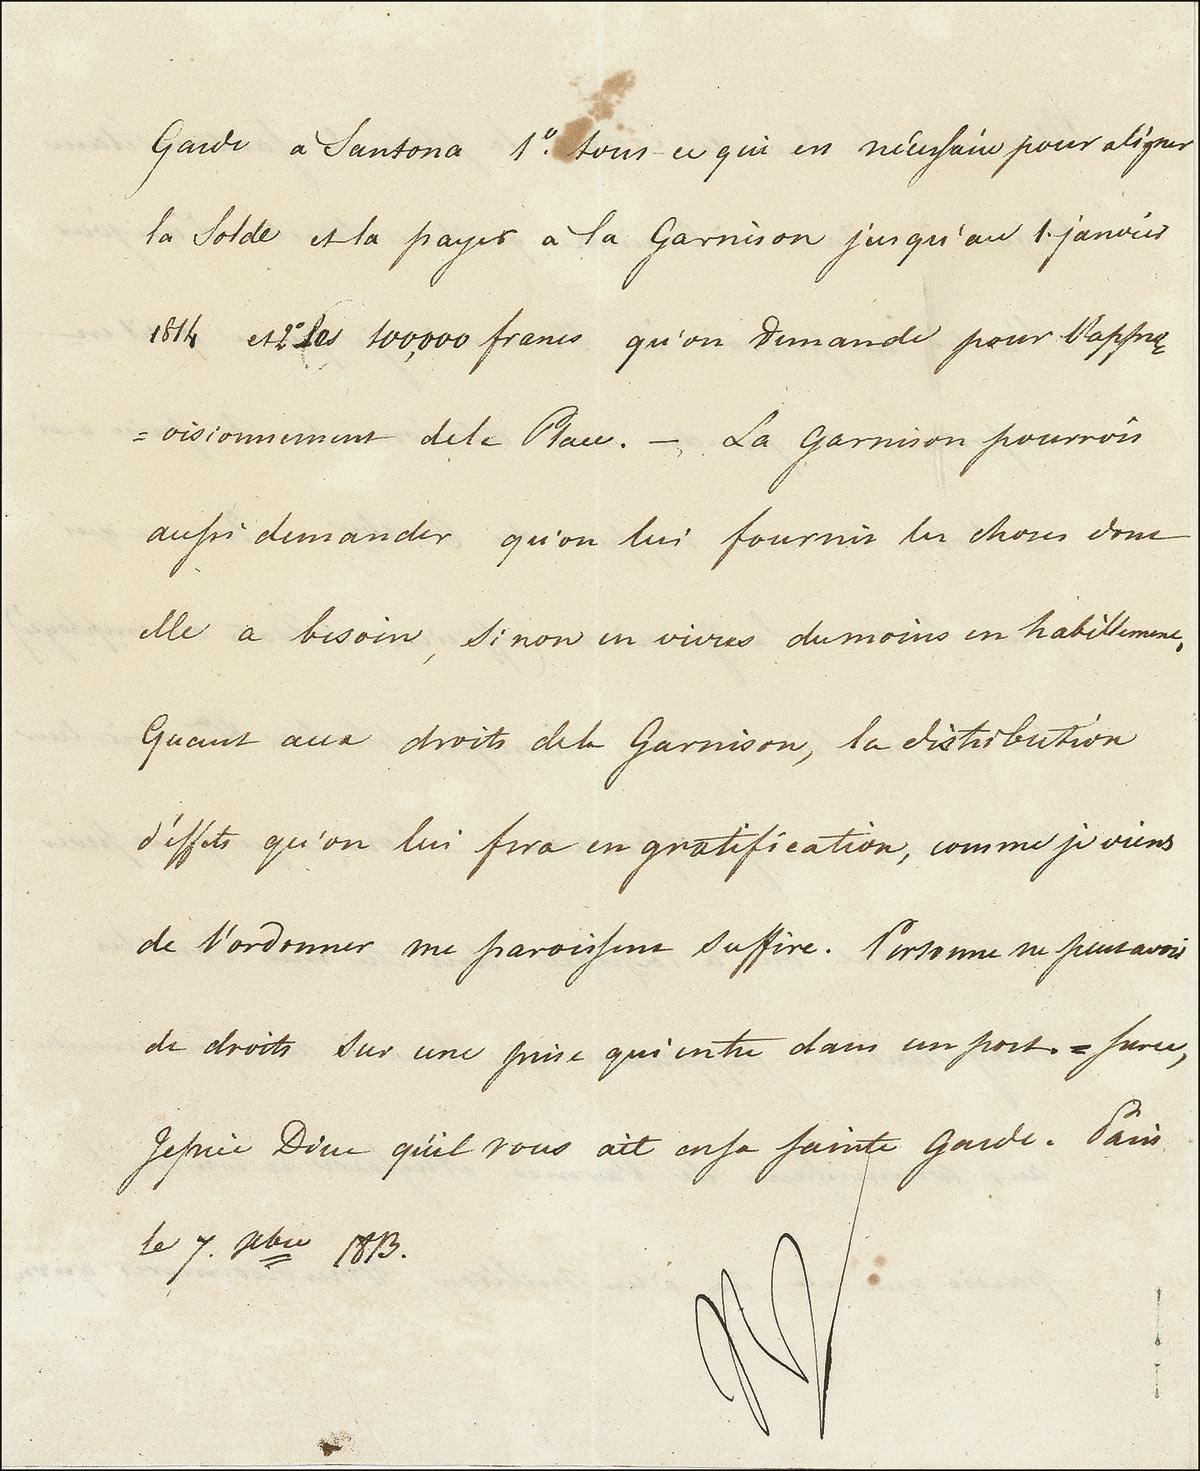 Garde à Santona 1º. tous ce qui est nécessaire pour aligner
la Solde et la payer à la Garnison jusqu'au 1. janvier
1814 et 2º les 100,000 francs qu'on demande pour l'appro
= visionnement de la Place. — La Garnison pourrois
aussi demander qu'on lui fournit les choses dont
elle a besoin, sinon en vivres du moins en habillement.
Quant aux droits de la Garnison, la distribution
d'effets qu'on lui fera en gratification, comme je viens
de l'ordonner me paroissent suffire. Personne ne peut avoir
de droits sur une prise qui entre dans un port. = Sur ce,
Je prie Dieu qu'il vous ait en sa sainte Garde. Paris
le 7. Xbre 1813.